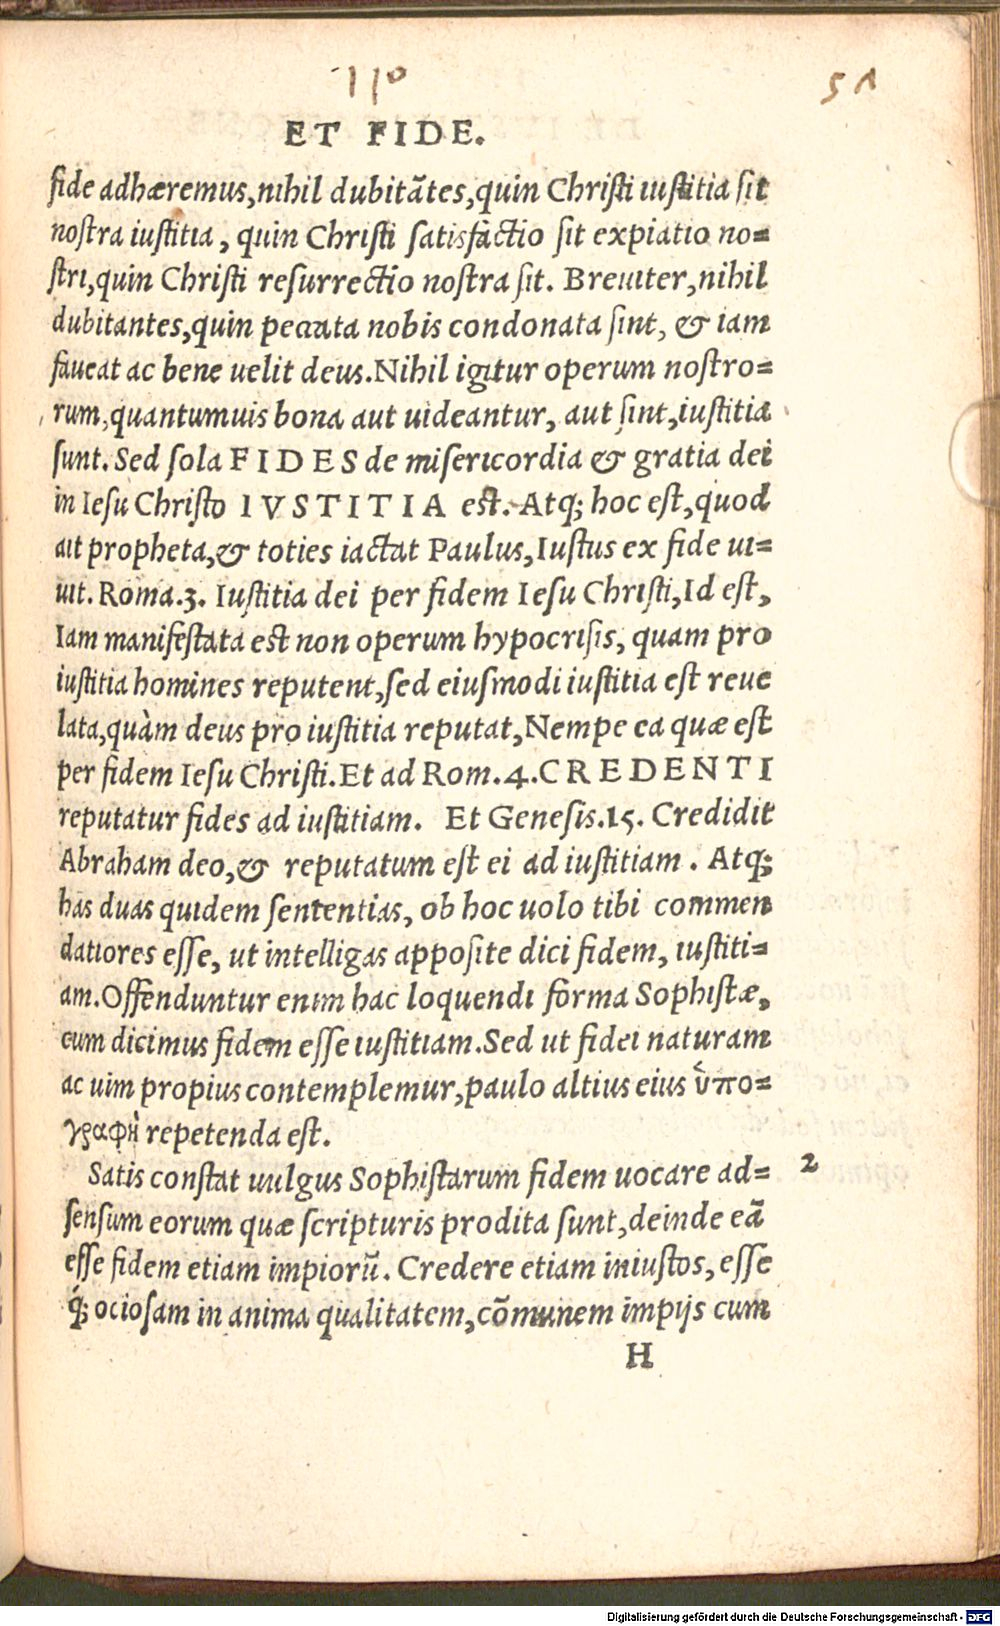 110
51
ET FIDE.
fide adhæremus, nihil dubitãtes, quin Christi iustitia sit
nostra iustitia, quin Christi satisfactio sit expiatio no=
stri, quin Christi resurrectio nostra sit. Breuiter, nihil
dubitantes, quin peccata nobis condonata sint, & iam
faueat ac bene uelit deus. Nihil igitur operum nostro=
rum, quantumuis bona aut uideantur, aut sint, iustitia
sunt. Sed sola FIDES de misericordia & gratia dei
in Iesu Christo IVSTITIA est. Atq; hoc est, quod
ait propheta, & toties iactat Paulus, Iustus ex fide ui=
uit. Roma.3. Iustitia dei per fidem Iesu Christi, Id est,
Iam manifestata est non operum hypocrisis, quam pro
iustitia homines reputent, sed eiusmodi iustitia est reue
lata, quàm deus pro iustitia reputat, Nempe ea quæ est
per fidem Iesu Christi. Et ad Rom.4. CREDENTI
reputatur fides ad iustitiam. Et Genesis.15. Credidit
Abraham deo, & reputatum est ei ad iustitiam. Atq;
has duas quidem sententias, ob hoc uolo tibi commen
datiores esse, ut intelligas apposite dici fidem, iustiti=
am. Offenduntur enim hac loquendi forma Sophistæ,
cum dicimus fidem esse iustitiam. Sed ut fidei naturam
ac uim propius contemplemur, paulo altius eius ὑπο=
γραφὴ repetenda est.
Satis constat uulgus Sophistarum fidem uocare ad= 2
sensum eorum quæ scripturis prodita sunt, deinde eã
esse fidem etiam impiorũ. Credere etiam iniustos, esse
q́; ociosam in anima qualitatem, cõmunem impijs cum
H
Digitalisierung gefördert durch die Deutsche Forschungsgemeinschaft - DFG